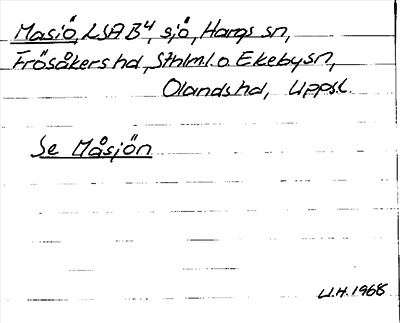 Masiö, LSA B4, sjö, Hargs sn,
Frösåkers hd, Sthlm l. o. Ekeby sn,
Olands hd, Upps. l.
Se Måsjön
U.H. 1968